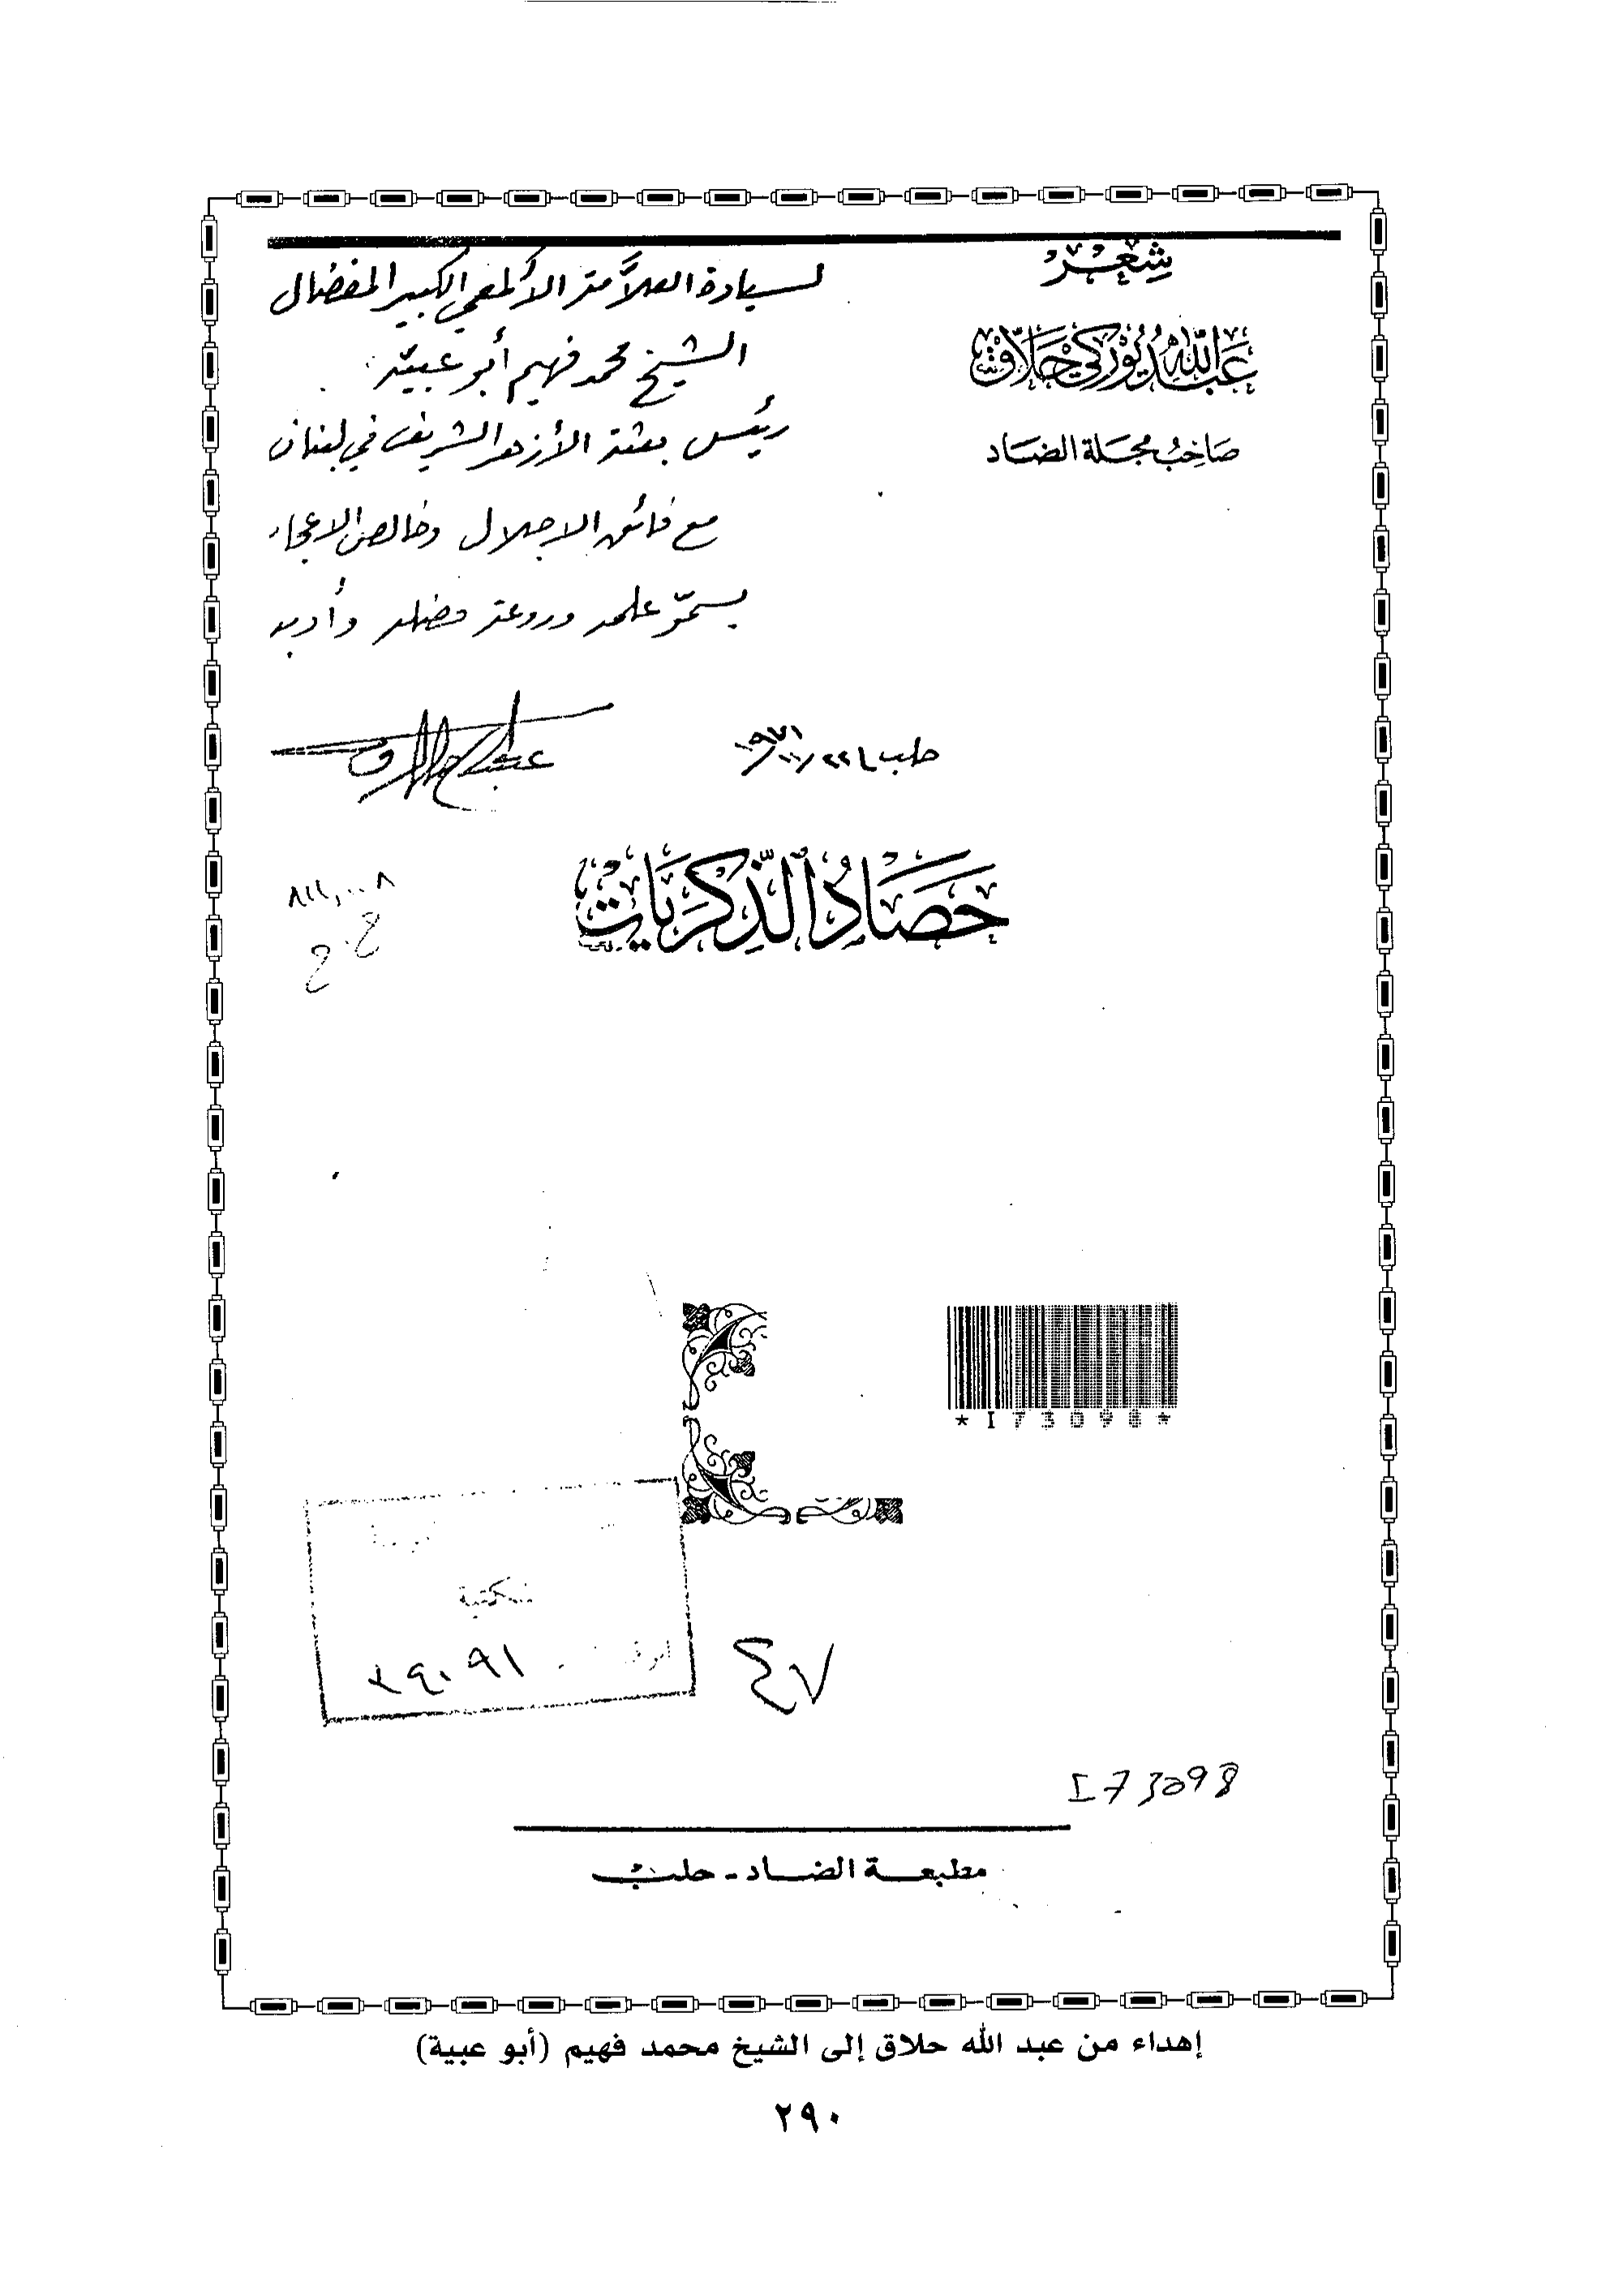 شعر
عبد الله يوركي حلاق
صاحب مجلة الضاد
لسيادة العلاَّمة الألمعي الكبير المفضال
الشيخ محمد فهيم أبو عبيّة
رئيس بعثة الأزهر الشريف في لبنان
مع فائق الاجلال وخالص الاعجاب
بسموّ علمه وروعة فضله وأدبه
حلب
حَصَادُ الذِّكرَيَاتِ
٨١١,٠٠٨
ع.ع
*I73098*
مكتبة
٣٩٠٩١
٤٧
I73098
مطبعة الضاد - حلب
إهداء من عبد الله حلاق إلى الشيخ محمد فهيم (أبو عبية)
٢٩٠